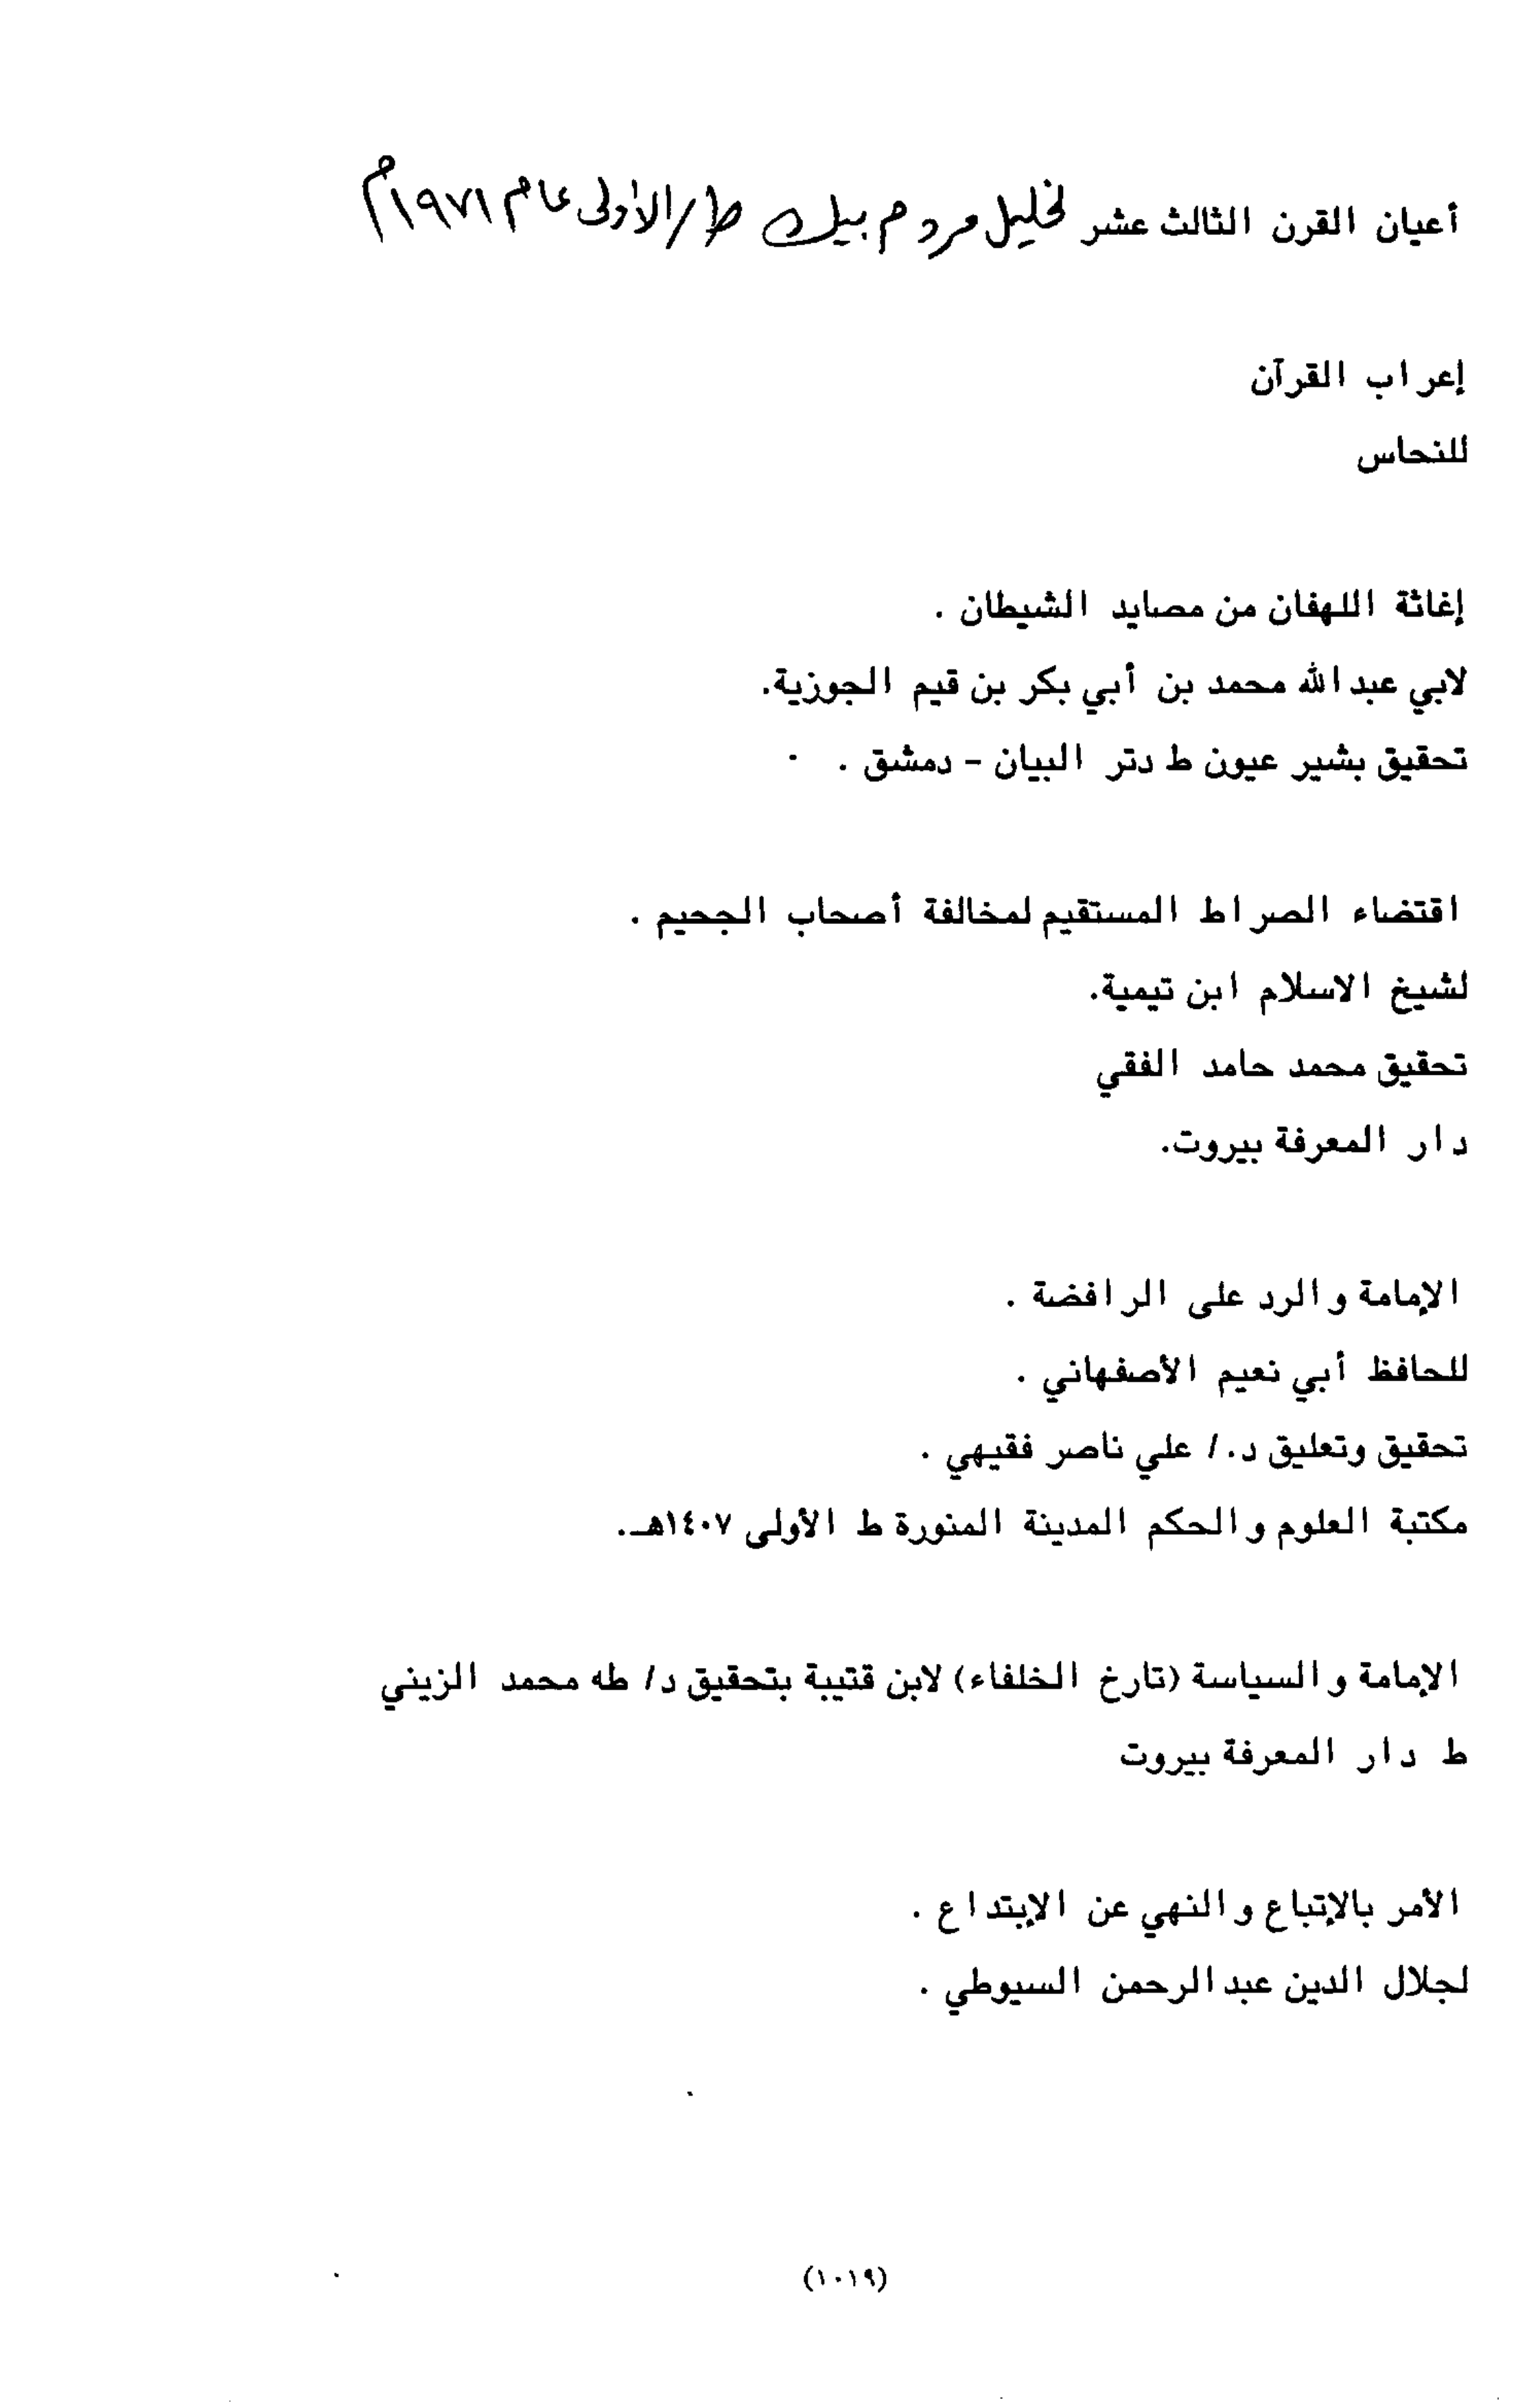 أعيان القرن الثالث عشر لخليل مردم بيك ط/الأولى عام ١٩٧١م
إعراب القرآن
للنحاس
إغاثة اللهفان من مصايد الشيطان .
لابي عبدالله محمد بن أبي بكر بن قيم الجوزية.
تحقيق بشير عيون ط دتر البيان - دمشق .
اقتضاء الصراط المستقيم لمخالفة أصحاب الجحيم .
لشيخ الاسلام ابن تيمية.
تحقيق محمد حامد الفقي
دار المعرفة بيروت.
الإمامة والرد على الرافضة .
للحافظ أبي نعيم الأصفهاني .
تحقيق وتعليق د./ علي ناصر فقيهي .
مكتبة العلوم والحكم المدينة المنورة ط الأولى ١٤٠٧هـ.
الإمامة والسياسة (تارخ الخلفاء) لابن قتيبة بتحقيق د/ طه محمد الزيني
ط دار المعرفة بيروت
الأمر بالإتباع والنهي عن الإبتداع .
لجلال الدين عبدالرحمن السيوطي .
(١٠١٩)